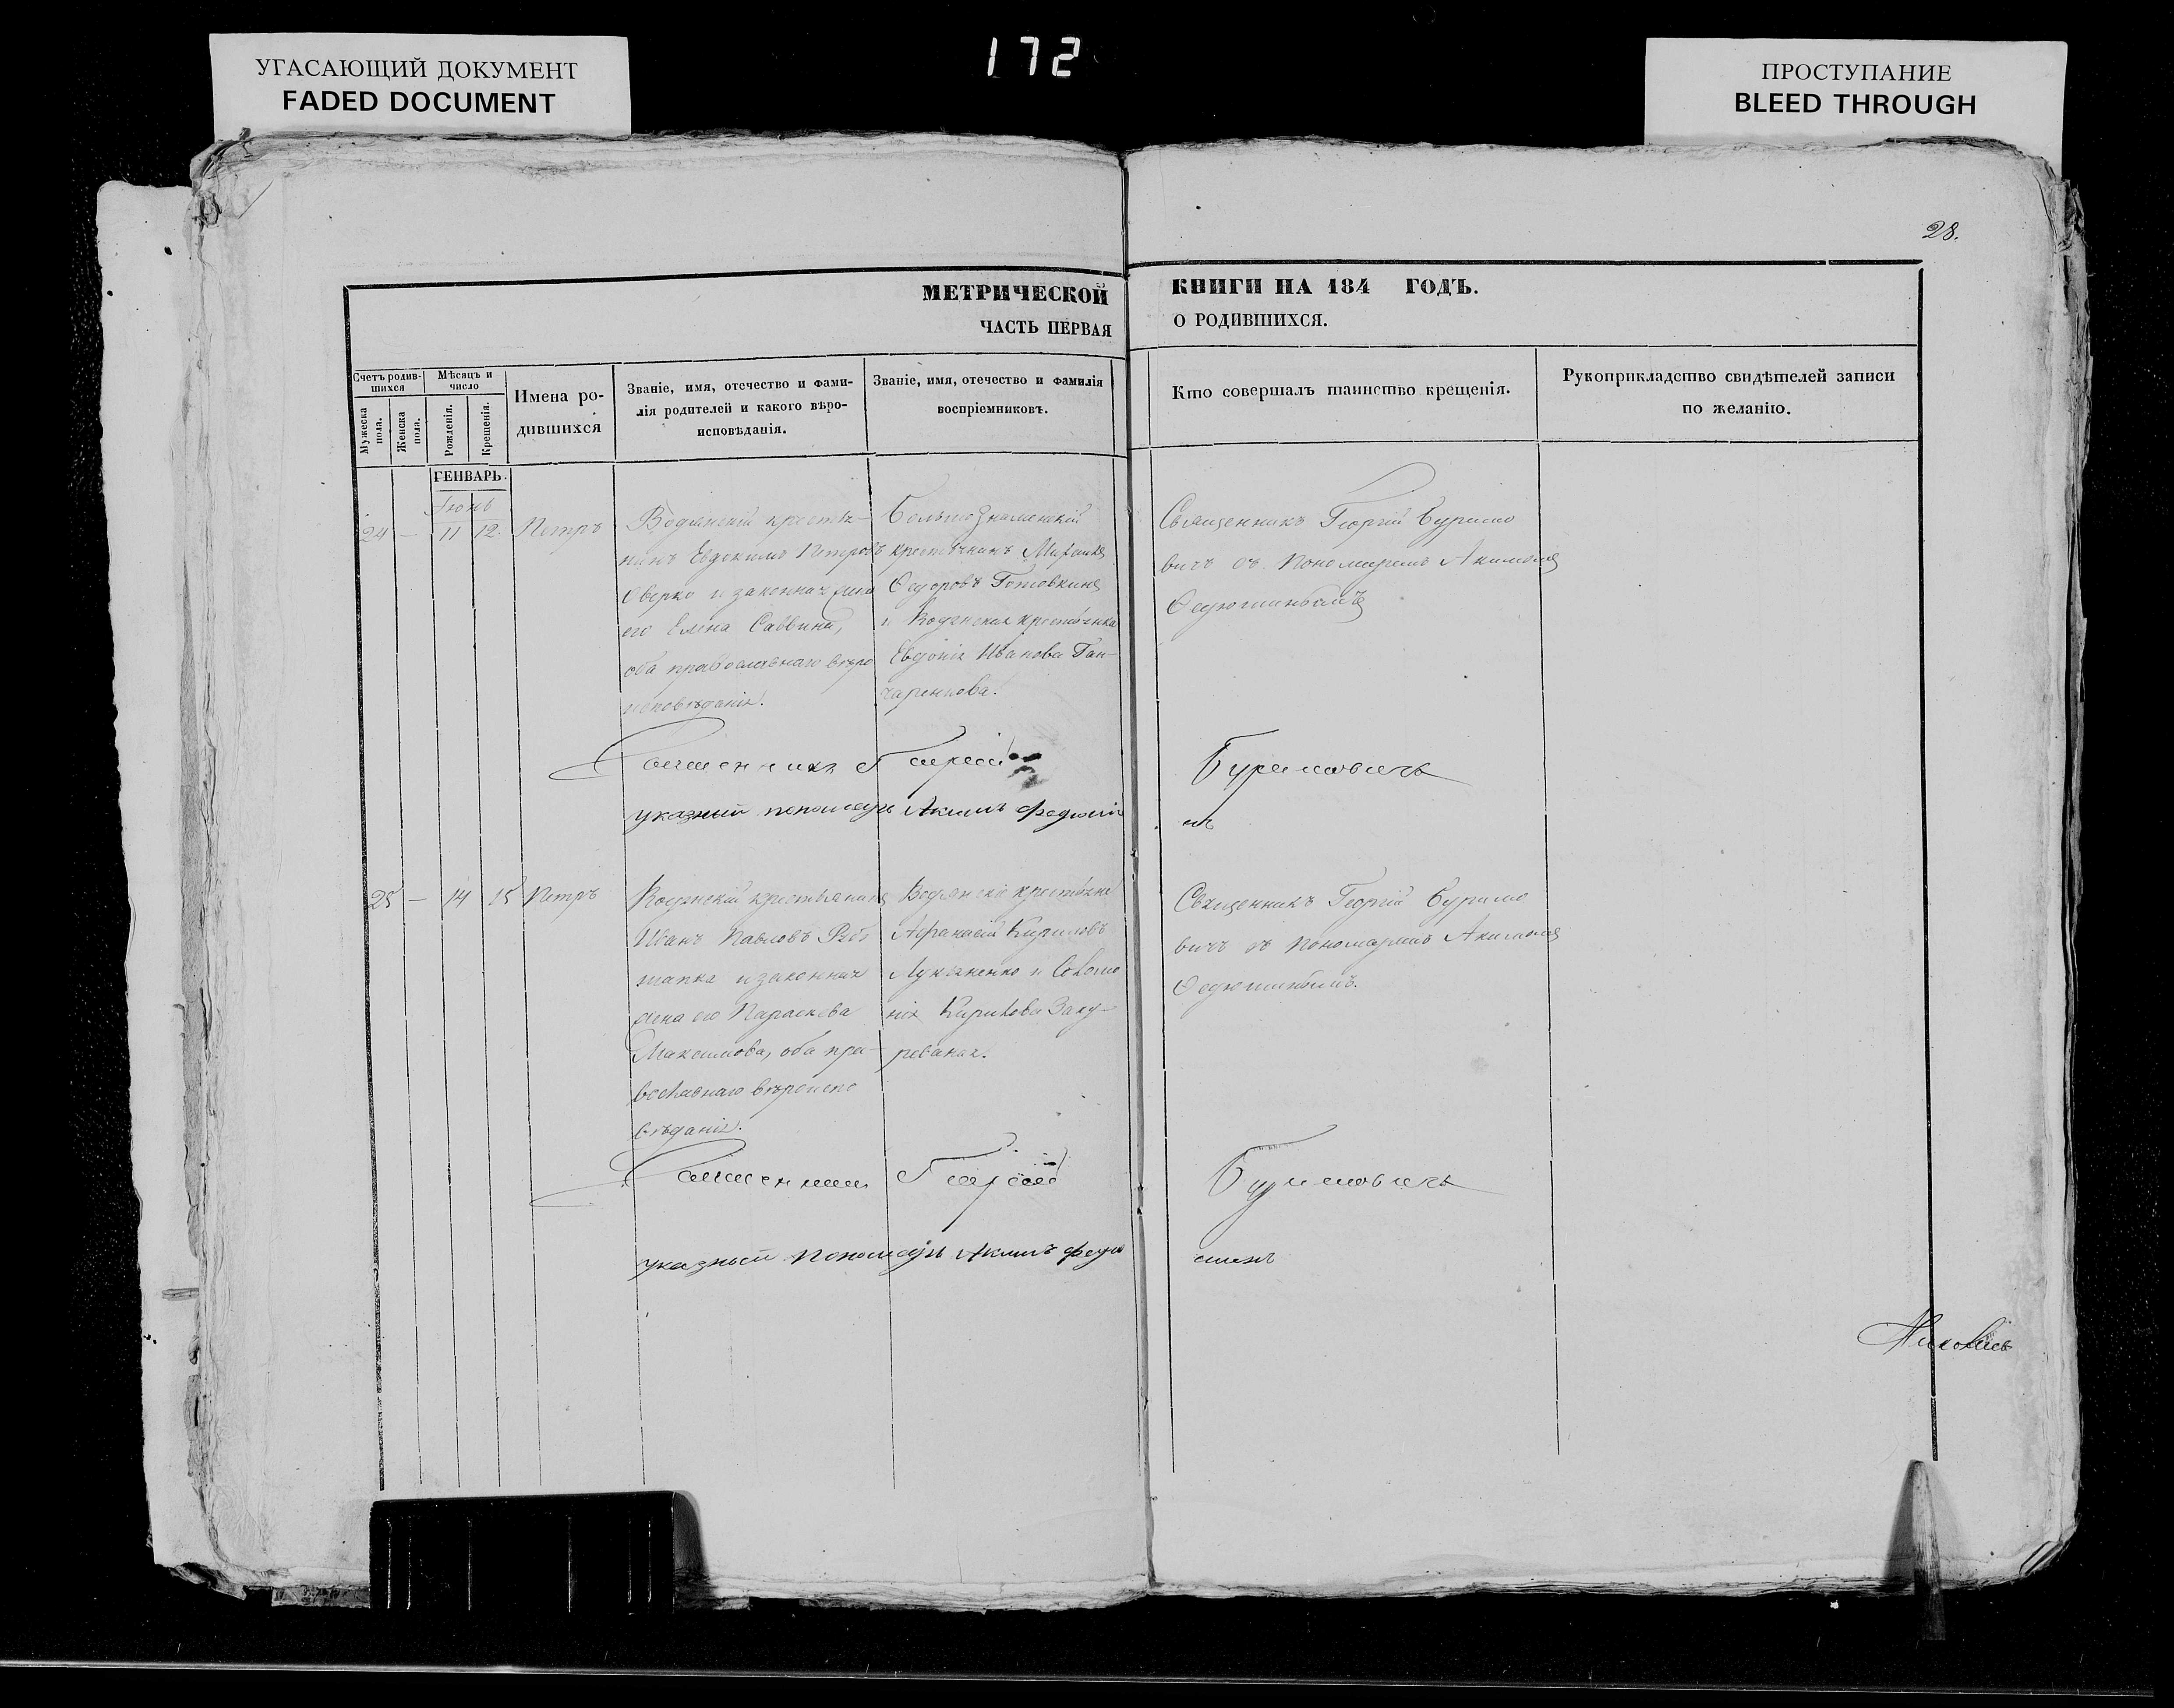 УГАСАЮЩИЙ ДОКУМЕНТ
FADED DOCUMENT
172
ПРОСТУПАНИЕ
BLEED THROUGH
28.
МЕТРИЧЕСКОЙ КНИГИ НА 184 ГОДЪ.
ЧАСТЬ ПЕРВАЯ О РОДИВШИХСЯ.
Счетъ родив-
шихся
Мужеска пола.
Женска пола.
Мѣсяцъ и
число
Рожденія.
Крещенія.
Имена ро-
дившихся
Званіе, имя, отечество и фами-
лія родителей и какого вѣро-
исповѣданія.
Званіе, имя, отечество и фамилія
воспріемниковъ.
Кто совершалъ таинство крещенія.
Рукоприкладство свидѣтелей записи
по желанію.
ГЕНВАРЬ.
Іюнь
24 — 11 12. Петръ
Водянскій крестья-
нинъ Евдокимъ Петровъ
и законная жена
его Елена Саввина,
оба православнаго вѣро
исповѣданія.
Больше Знаменскій
крестьянинъ
Ѳедоровъ
и Водянская крестьянка
Евдокія Иванова Ган-
чаренкова.
Священникъ Георгій Буримо
вичъ съ Пономаремъ Акимомъ
Ѳедюшинымъ
Священникъ Георгій Буримовичъ
указный пономарь Акимъ Федюшинъ
25 — 14 15 Петръ
Водянскій крестьянинъ
Иванъ Павловъ
и законная
жена его Параскева
Максимова, оба пра-
вославнаго вѣроиспо
вѣданія.
Водянскіе крестьяне
Афанасій Кириловъ
Лукьяненко и
Кирилова
Священникъ Георгій Буримо
вичъ съ Пономаремъ Акимомъ
Ѳедюшинымъ.
Священникъ Георгій Буримовичъ
указный Пономарь Акимъ Федюшинъ